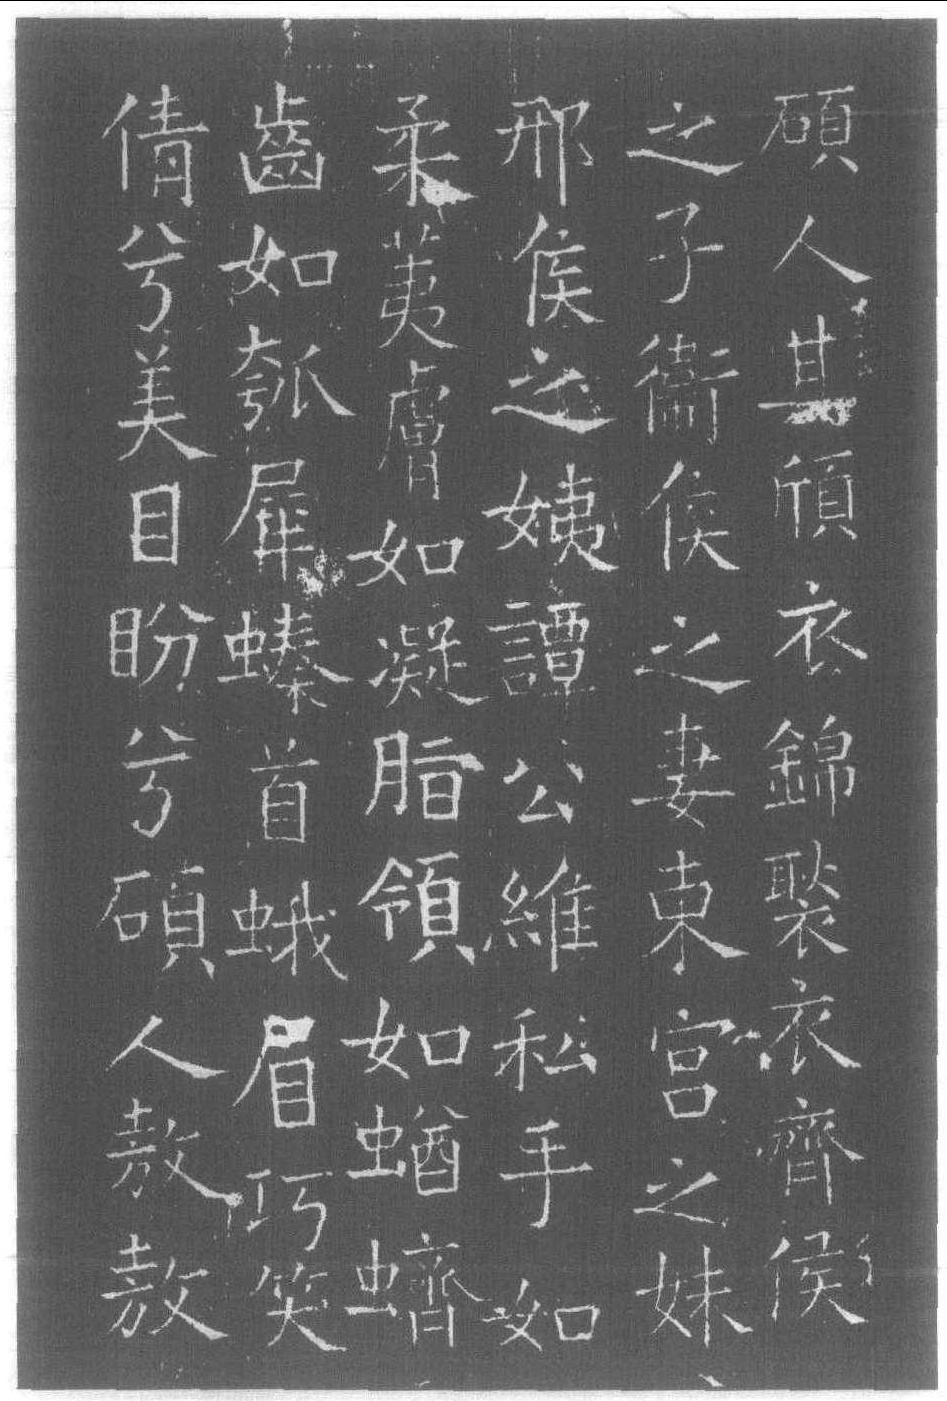 碩人其頎衣錦褧衣齊侯
之子衞侯之妻東宮之妹
邢侯之姨譚公維私手如
柔荑膚如凝脂領如蝤蠐
齒如瓠犀螓首蛾眉巧笑
倩兮美目盼兮碩人敖敖